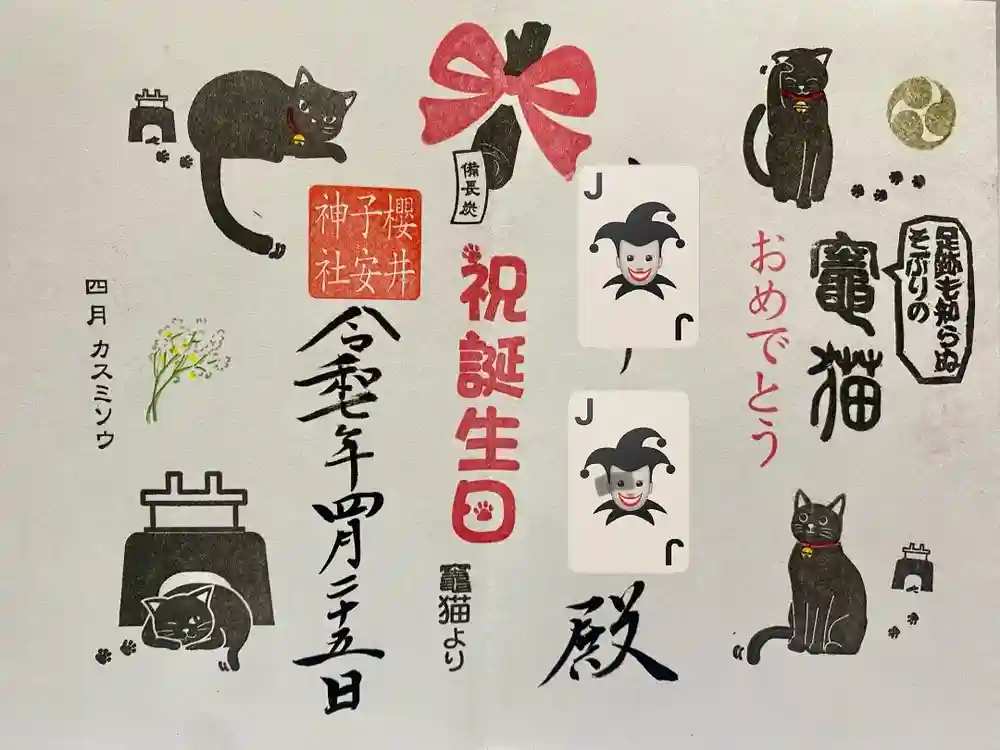 足跡も知らぬ
そぶりの
竈猫
おめでとう
J
J
J
J
殿
備長炭
祝誕生日
竈猫より
櫻井
子安
神社
令和七年四月二十五日
四月 カスミソウ